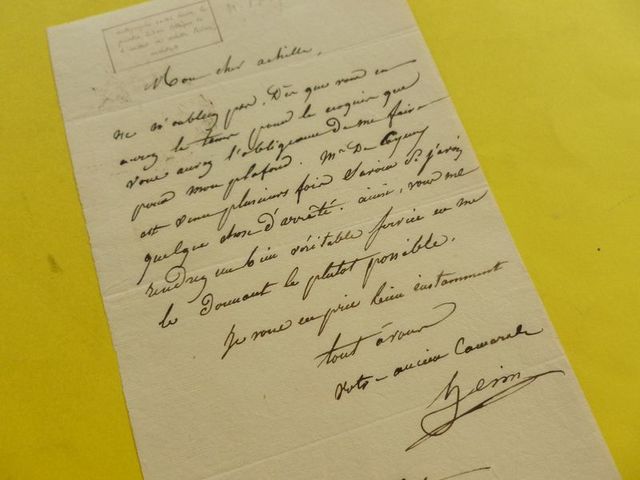 Mon cher achille,
ne m'oubliez pas. Dès que vous en
aurez le tems pour le croquis que
vous aurez l'obligeance de me faire
pour mon plafond. Mr De
est venu plusieurs fois savoir si j'avois
quelque chose d'arrêté. ainsi, vous me
rendrez un bien véritable service en me
le donnant le plutot possible.
Je vous en prie bien instamment
tout à vous
votre ancien Camarade
heim